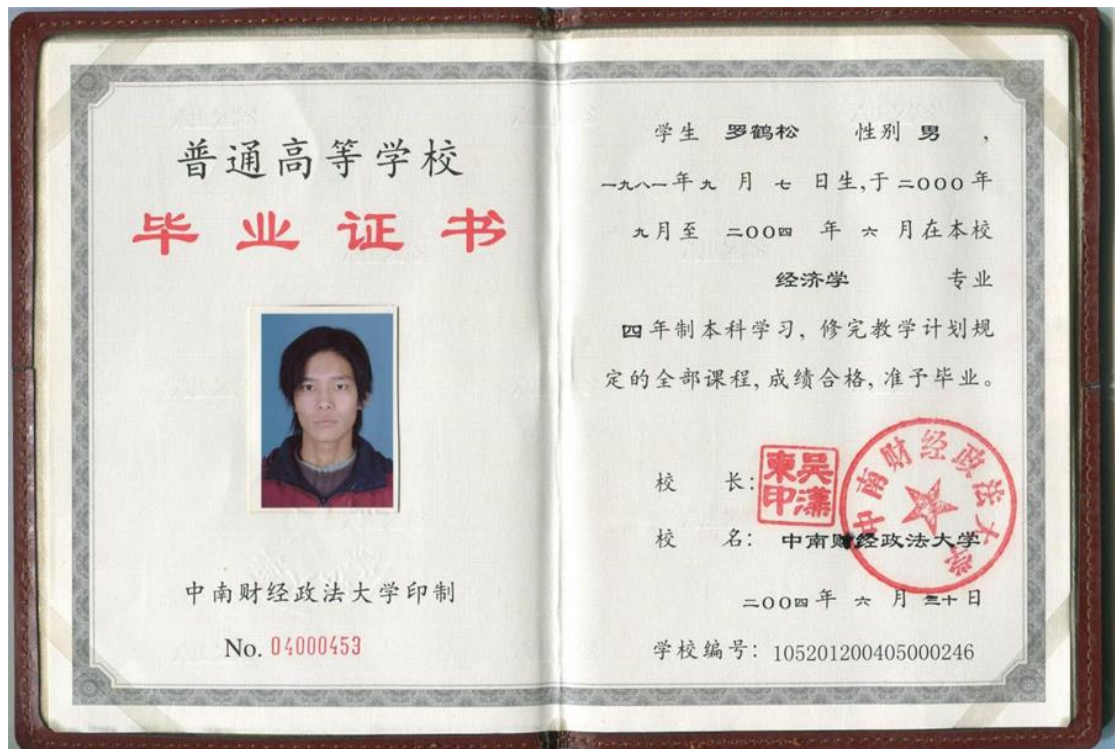 普通高等学校
毕业证书
中南财经政法大学印制
No. 04000453
学生 罗鹤松 性别 男 ,
一九八一年九月七日生,于二000年
九月至 二00四 年 六 月在本校
经济学 专业
四年制本科学习, 修完教学计划规
定的全部课程, 成绩合格, 准予毕业。
校 长:
吴汉东印
校 名: 中南财经政法大学
中南财经政法大学
二00四年 六 月 三十日
学校编号: 105201200405000246